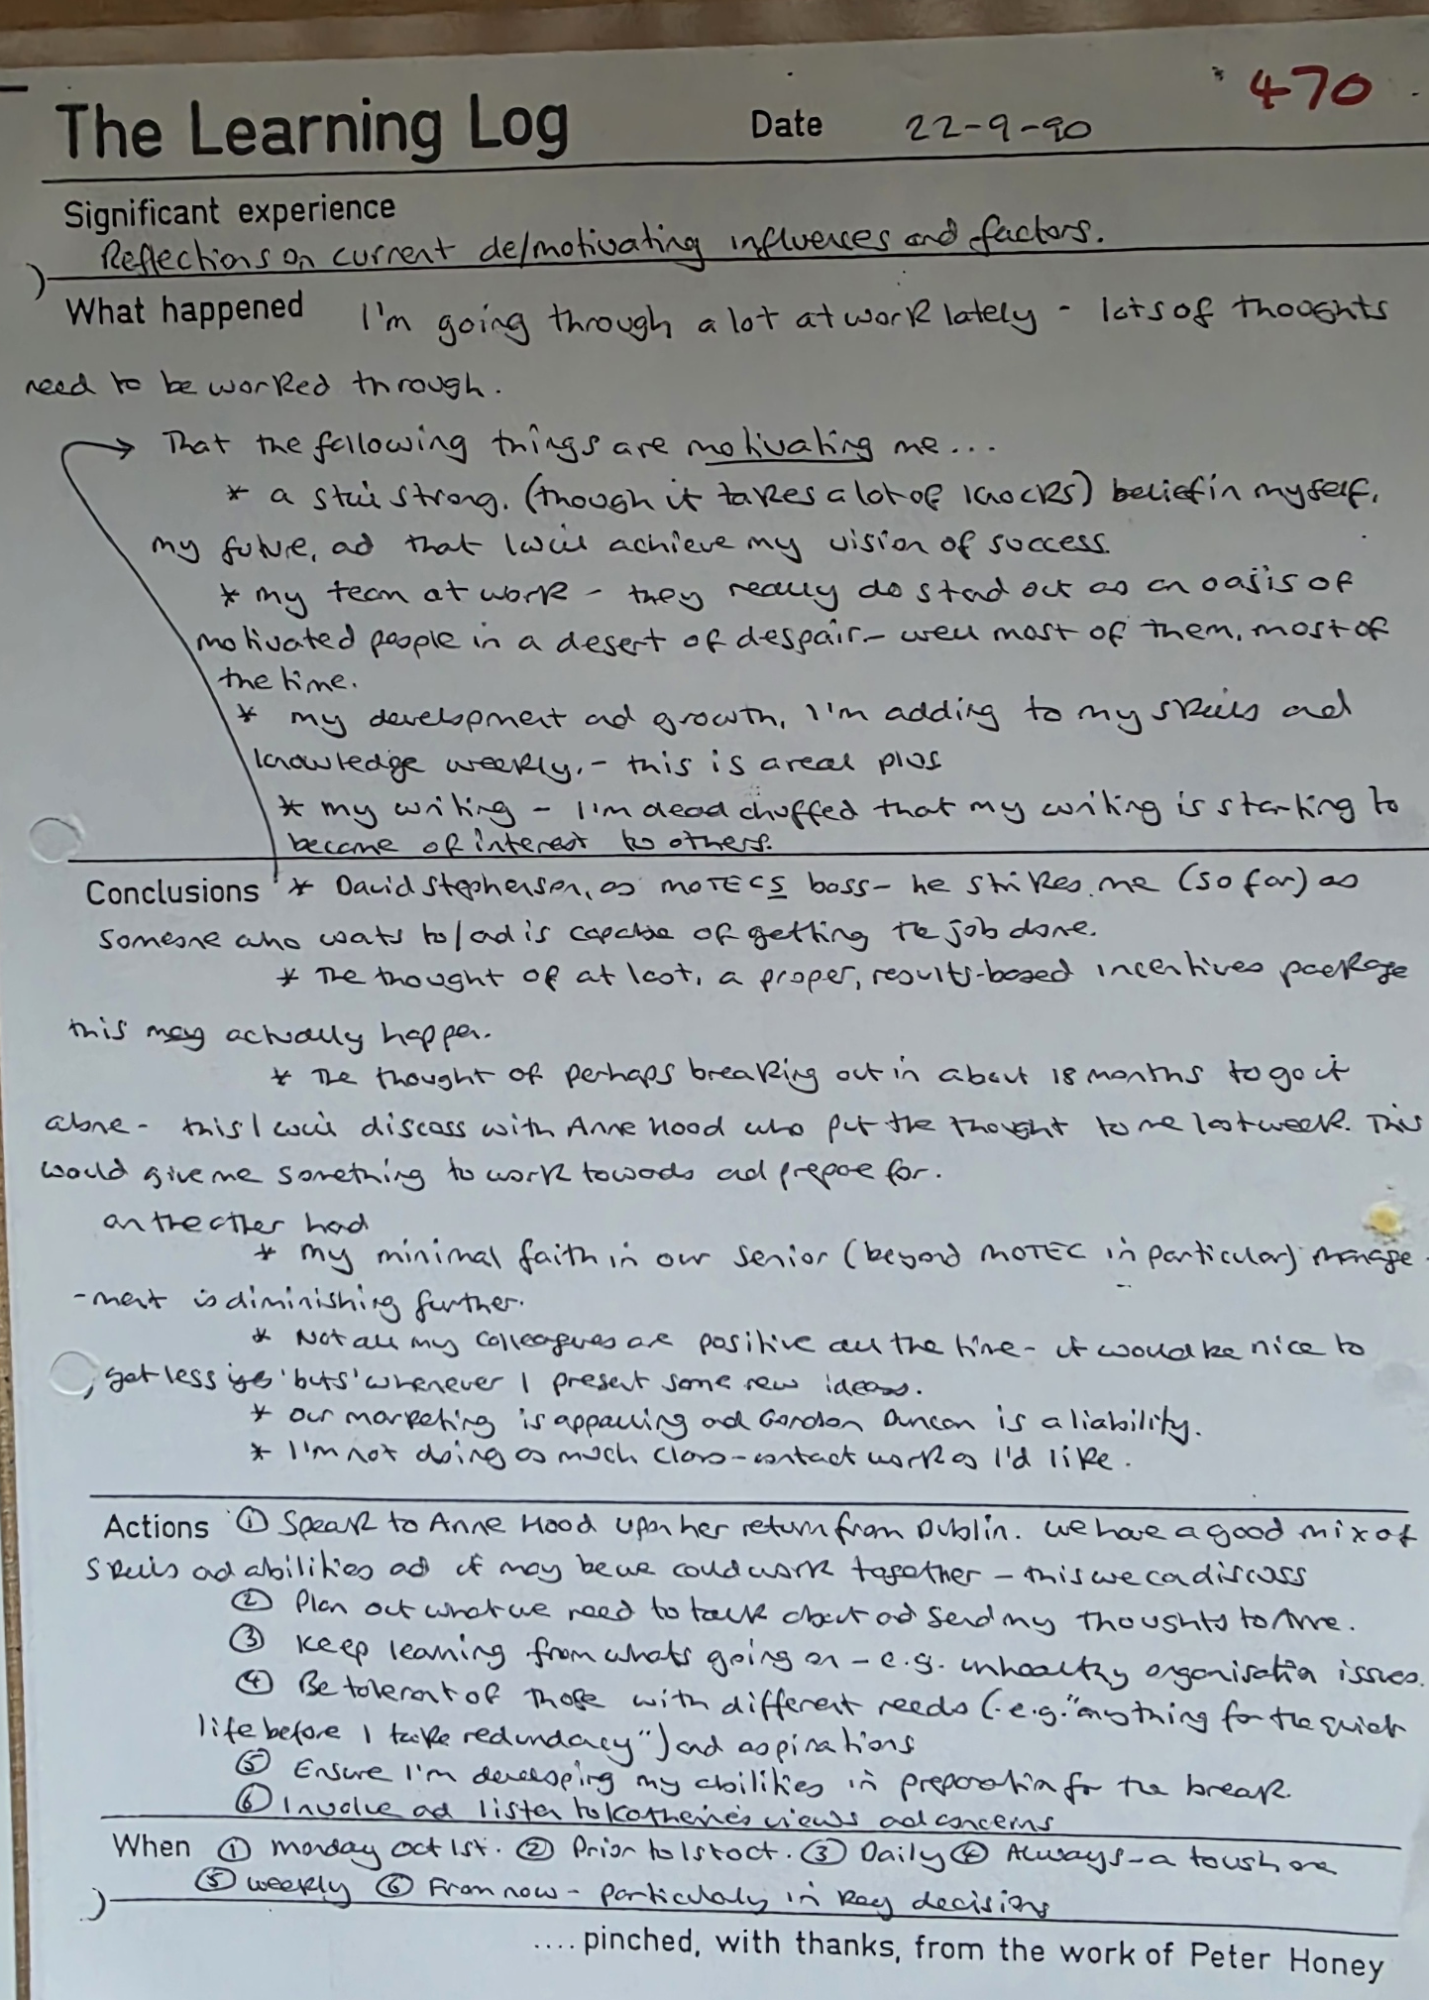 470
The Learning Log Date 22-9-90
Significant experience
Reflections on current de/motivating influences and factors.
What happened I'm going through a lot at work lately - lots of thoughts
need to be worked through.
That the following things are motivating me...
* a still strong, (though it takes a lot of knocks) belief in myself,
my future, ad that I will achieve my vision of success.
* my team at work - they really do stad out as an oasis of
motivated people in a desert of despair - well most of them, most of
the time.
* my development ad growth, I'm adding to my skills ad
knowledge weekly, - this is a real plus
* my writing - I'm dead chuffed that my writing is starting to
become of interest to others.
Conclusions * David Stephenson, as MOTECS boss - he strikes me (so far) as
someone who wats to/ad is capable of getting the job done.
* The thought of at last, a proper, results-based incentives package
this may actually happen.
* The thought of perhaps breaking out in about 18 months to go it
alone - this I will discuss with Anne Hood who put the thought to me last week. This
would give me something to work towards ad prepare for.
on the other had
* my minimal faith in our senior (beyond MOTEC in particular) manage
-ment is diminishing further.
* Not all my colleagues are positive all the time - it would be nice to
get less 'buts' whenever I present some new ideas.
* Our marketing is appalling ad Gordon Duncan is a liability.
* I'm not doing as much class-contact work as I'd like.
Actions ① Speak to Anne Hood upon her return from Dublin. We have a good mix of
skills ad abilities ad it may be we could work together - this we ca discuss
② Plan out what we need to talk about ad send my thoughts to Anne.
③ Keep learning from whats going on - e.g. unhealthy organisation issues.
④ Be tolerant of those with different needs (e.g. "anything for the quiet
life before I take redundacy") and aspirations
⑤ Ensure I'm developing my abilities in preparation for the break.
⑥ Involve ad listen to Katherine's views ad concerns
When ① Monday Oct 1st. ② Prior to 1st Oct. ③ Daily ④ Always - a tough one
⑤ weekly ⑥ From now - particularly in key decisions
.... pinched, with thanks, from the work of Peter Honey